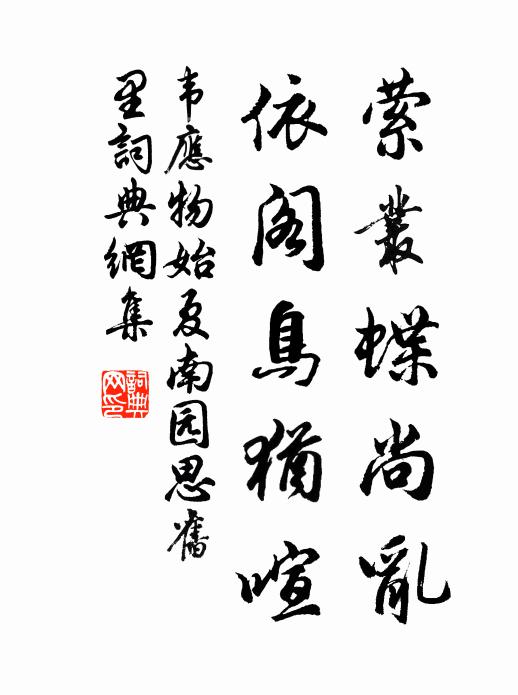 萦叢蝶尚亂
依阁鳥猶喧
韦應物始夏南园思舊
里詞典網集
詞典
网印